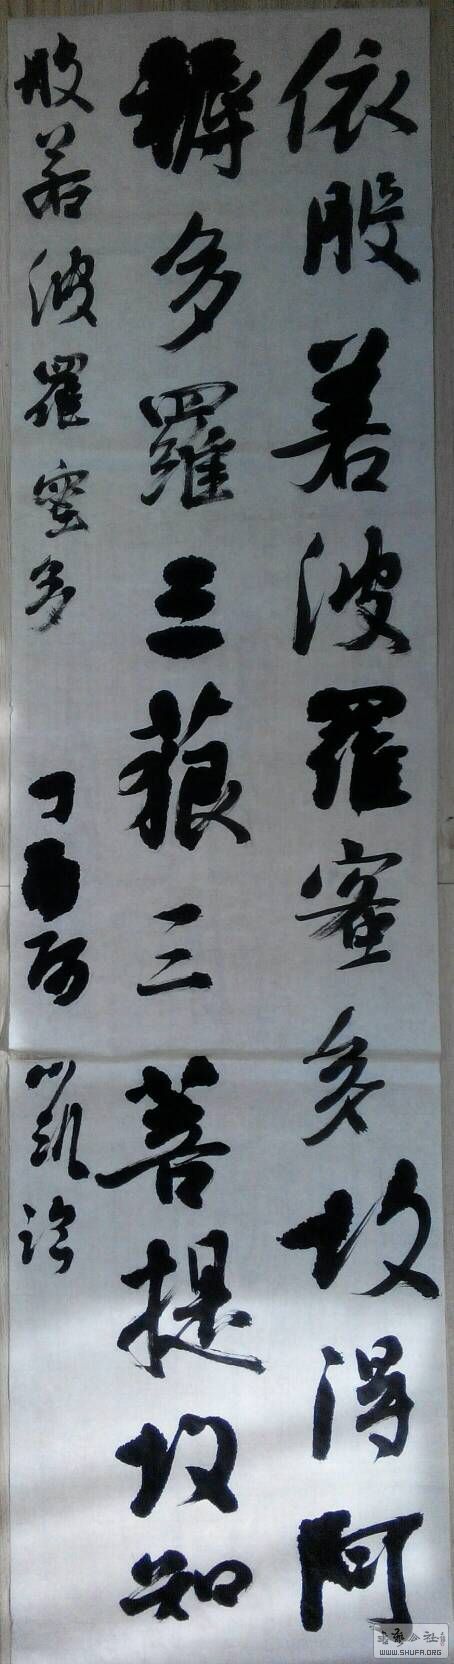 依般若波羅蜜多故得阿
耨多羅三藐三菩提故知
般若波羅蜜多
丁酉
WWW.SHUFA.ORG